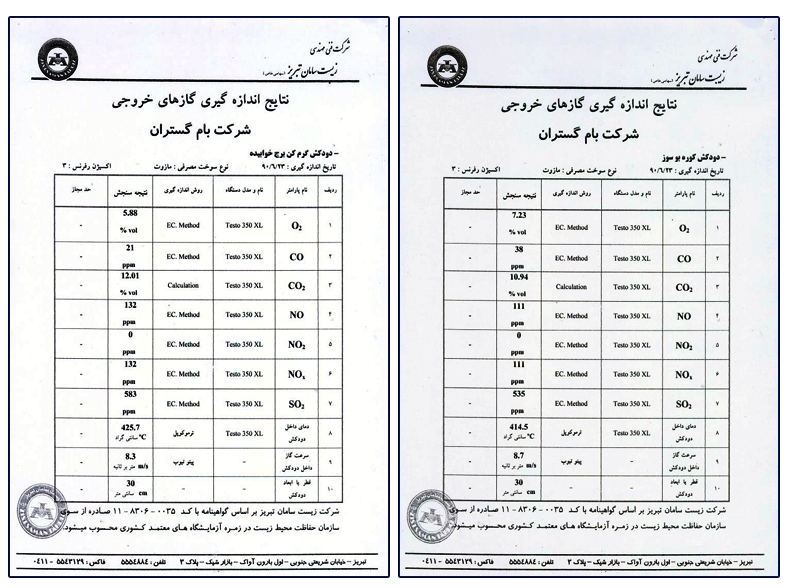 شرکت فنی مهندسی
زیست سامان تبریز (سهامی خاص)
نتایج اندازه گیری گازهای خروجی
شرکت بام گستران
- دودکش گرم کن برج خوابیده
تاریخ اندازه گیری : ۹۰/۶/۲۳ نوع سوخت مصرفی : مازوت اکسیژن رفرنس : ۳
ردیف نام پارامتر نام و مدل دستگاه روش اندازه گیری نتیجه سنجش حد مجاز
۱ O2 Testo 350 XL EC. Method 5.88 % vol -
۲ CO Testo 350 XL EC. Method 21 ppm -
۳ CO2 Testo 350 XL Calculation 12.01 % vol -
۴ NO Testo 350 XL EC. Method 132 ppm -
۵ NO2 Testo 350 XL EC. Method 0 ppm -
۶ NOx Testo 350 XL EC. Method 132 ppm -
۷ SO2 Testo 350 XL EC. Method 583 ppm -
۸ دمای داخل دودکش Testo 350 XL ترموکوپل 425.7 °C سانتی گراد -
۹ سرعت گاز داخل دودکش - پیتو تیوب 8.3 m/s متر بر ثانیه -
۱۰ قطر یا ابعاد دودکش - - 30 cm سانتی متر -
شرکت زیست سامان تبریز بر اساس گواهینامه با کد ۰۰۳۵ - ۸۳۰۶ - ۱۱ صادره از سوی
سازمان حفاظت محیط زیست در زمره آزمایشگاه های معتمد کشوری محسوب میشود.
تبریز - خیابان شریعتی جنوبی - اول بارون آواک - بازار شیک - پلاک ۳ تلفن : ۵۵۵۴۸۸۴ فاکس : ۵۵۴۳۱۲۹ - ۰۴۱۱
شرکت فنی مهندسی
زیست سامان تبریز (سهامی خاص)
نتایج اندازه گیری گازهای خروجی
شرکت بام گستران
- دودکش کوره بو سوز
تاریخ اندازه گیری : ۹۰/۶/۲۳ نوع سوخت مصرفی : مازوت اکسیژن رفرنس : ۳
ردیف نام پارامتر نام و مدل دستگاه روش اندازه گیری نتیجه سنجش حد مجاز
۱ O2 Testo 350 XL EC. Method 7.23 % vol -
۲ CO Testo 350 XL EC. Method 38 ppm -
۳ CO2 Testo 350 XL Calculation 10.94 % vol -
۴ NO Testo 350 XL EC. Method 111 ppm -
۵ NO2 Testo 350 XL EC. Method 0 ppm -
۶ NOx Testo 350 XL EC. Method 111 ppm -
۷ SO2 Testo 350 XL EC. Method 535 ppm -
۸ دمای داخل دودکش Testo 350 XL ترموکوپل 414.5 °C سانتی گراد -
۹ سرعت گاز داخل دودکش - پیتو تیوب 8.7 m/s متر بر ثانیه -
۱۰ قطر یا ابعاد دودکش - - 30 cm سانتی متر -
شرکت زیست سامان تبریز بر اساس گواهینامه با کد ۰۰۳۵ - ۸۳۰۶ - ۱۱ صادره از سوی
سازمان حفاظت محیط زیست در زمره آزمایشگاه های معتمد کشوری محسوب میشود.
تبریز - خیابان شریعتی جنوبی - اول بارون آواک - بازار شیک - پلاک ۳ تلفن : ۵۵۵۴۸۸۴ فاکس : ۵۵۴۳۱۲۹ - ۰۴۱۱